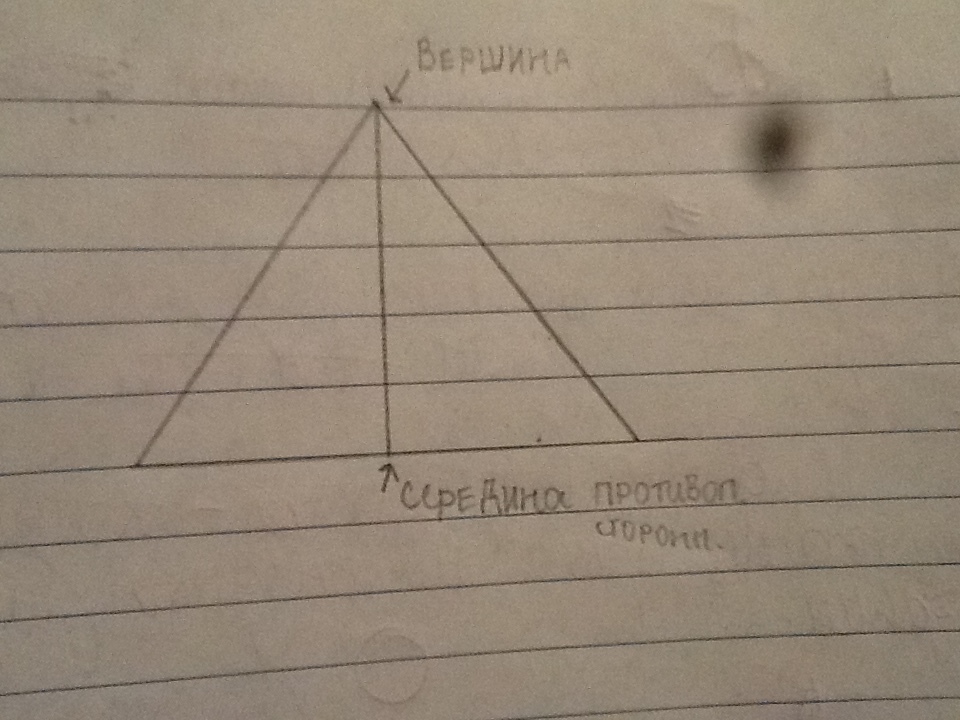 ВЕРШИНА
СЕРЕДИНА ПРОТИВОП.
СТОРОНЫ.